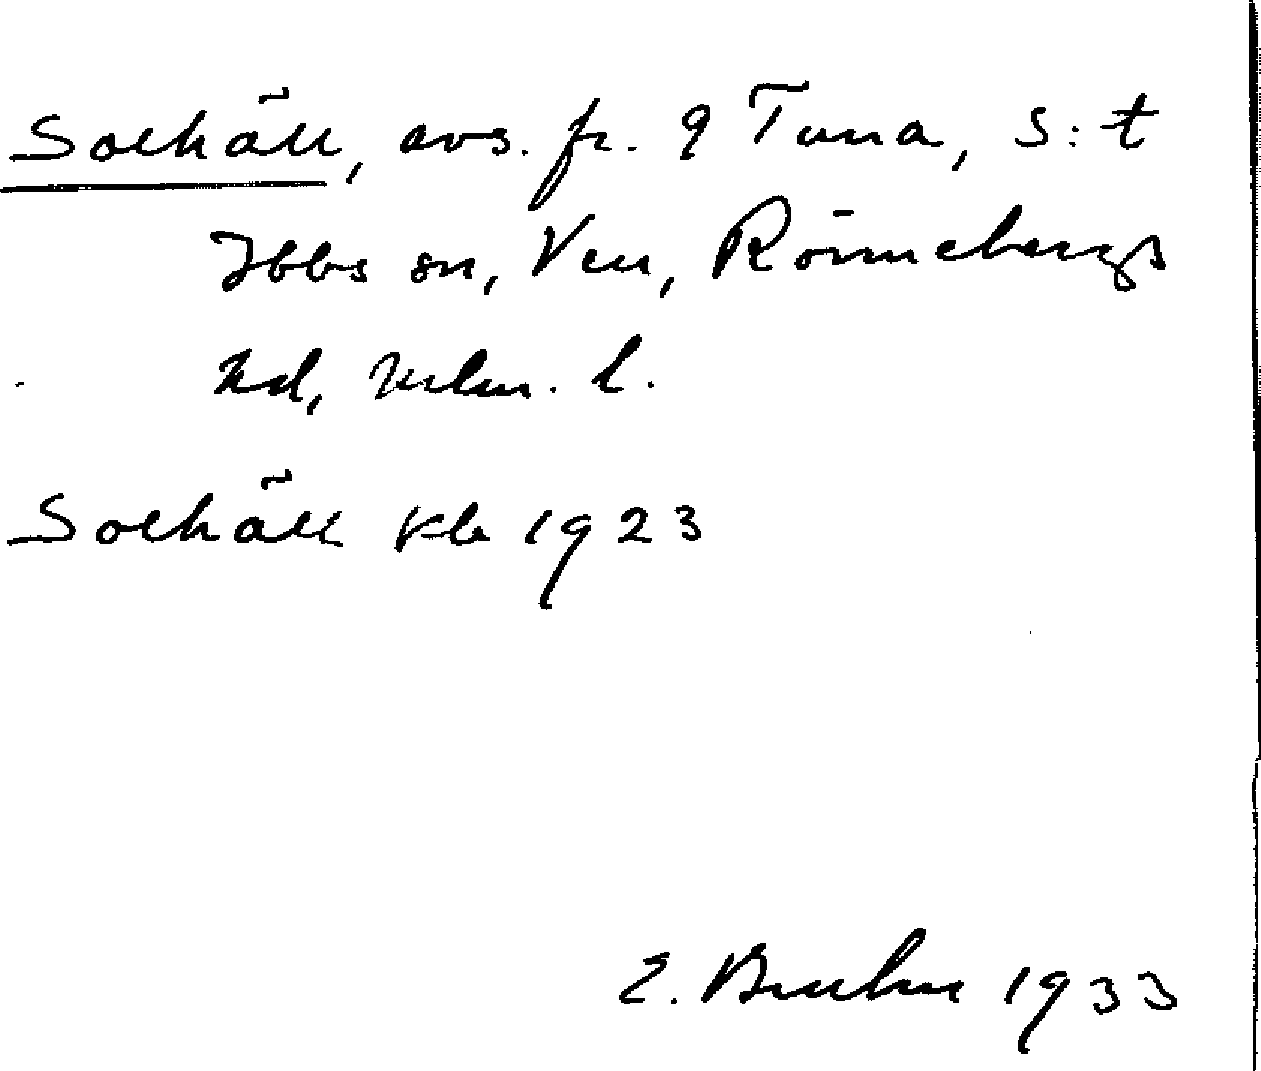 Solhäll, avs. fr. 9 Tuna, S:t
Ibbs sn, Ven, Rönnebergs
hd, Mlm. l.
Solhäll Kb 1923
E. Bruhn 1933